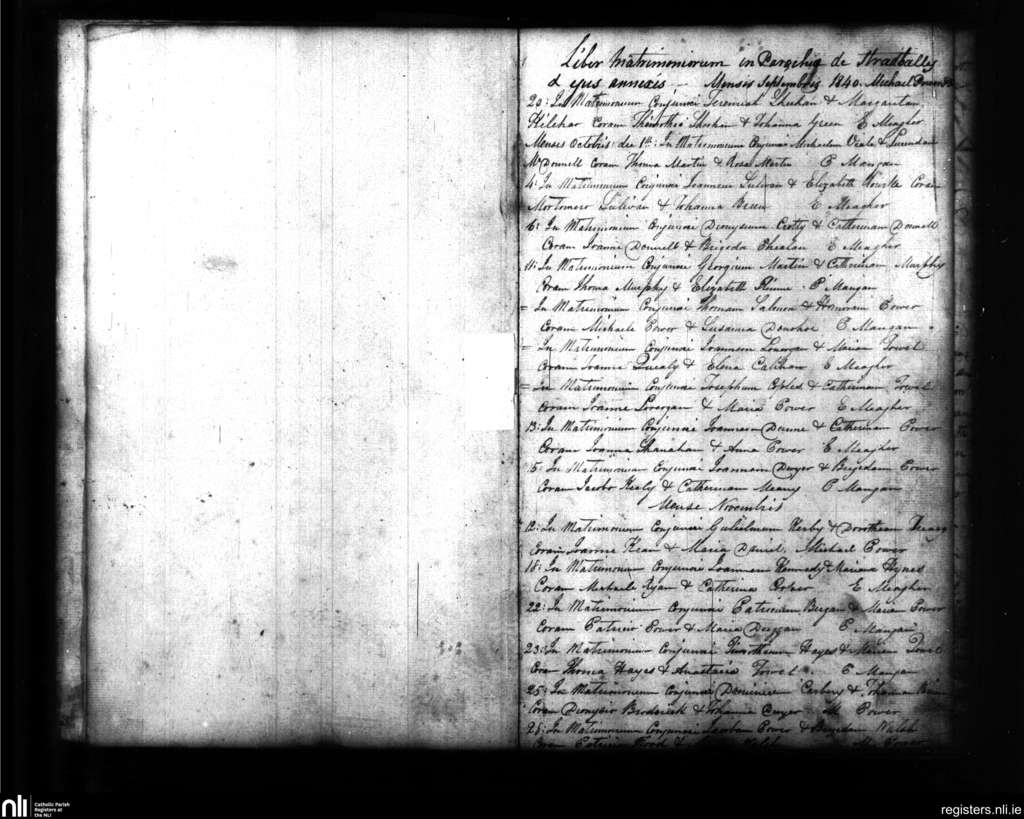 Liber Matrimoniorum in Parochia de Stradbally
& ejus annexis - Mensis Septembris 1840. Michael Power
20: In Matrimonium Conjunxi Jeremiah & Margaritam
Coram & Johanna Green E Meagher
Menses Octobris die 1st: In Matrimonium Conjunxi Michaelem &
McDonnell Coram Thoma Martin & Rosa Martin P Mangan
4: In Matrimonium Conjunxi Joannem Sulivan & Elizabeth Coram
Mortomero Sulivan & Johanna E Meagher
6: In Matrimonium Conjunxi Dionysium Crotty & Catherinam Donnell
Coram Joanne Donnell & Brigida Phealan E Meagher
11: In Matrimonium Conjunxi Georgium Martin & Catherinam Murphy
Coram Thoma Murphy & Elizabeth P Mangan
= In Matrimonium Conjunxi Thomam Salmon & Honoram Power
Coram Michaele Power & Susanna Donohoe P Mangan
= In Matrimonium Conjunxi Joannem & Mariam Towel
Coram Joanne Quealy & Elena Calihan E Meagher
= In Matrimonium Conjunxi Josephum & Catherinam Towel
Coram Joanne Lonergan & Maria Power E Meagher
13: In Matrimonium Conjunxi Joannem Dunne & Catherinam Power
Coram Joanna Shanahan & Anna Power E Meagher
15: In Matrimonium Conjunxi Joannam Dwyer & Brigidam Power
Coram Jacobo Kealy & Catherinam Meany P Mangan
Mense Novembris
12: In Matrimonium Conjunxi Gulielmum Kerby & Dorotheam
Coram Joanne Kean & Maria Daniel, Michael Power
18: In Matrimonium Conjunxi Joannem Kennedy & Mariam Hynes
Coram Michaele Ryan & Catherina E Meagher
22: In Matrimonium Conjunxi Patricium Bergan & Maria Power
Coram Patricio Power & Maria Duggan P Mangan
23: In Matrimonium Conjunxi Timotheum Hayes & Mariam Towel
Coram Thoma Hayes & Anastasia Towel P Mangan
25: In Matrimonium Conjunxi Dominicum Corbery & Johanna
Coram Dionysio Broderick & Johanna M Power
28: In Matrimonium Conjunxi Jacobum Power & Brigidam Walsh
Coram Patricio & Walsh M. Power
nli
Catholic Parish
Registers at
the NLI
registers.nli.ie